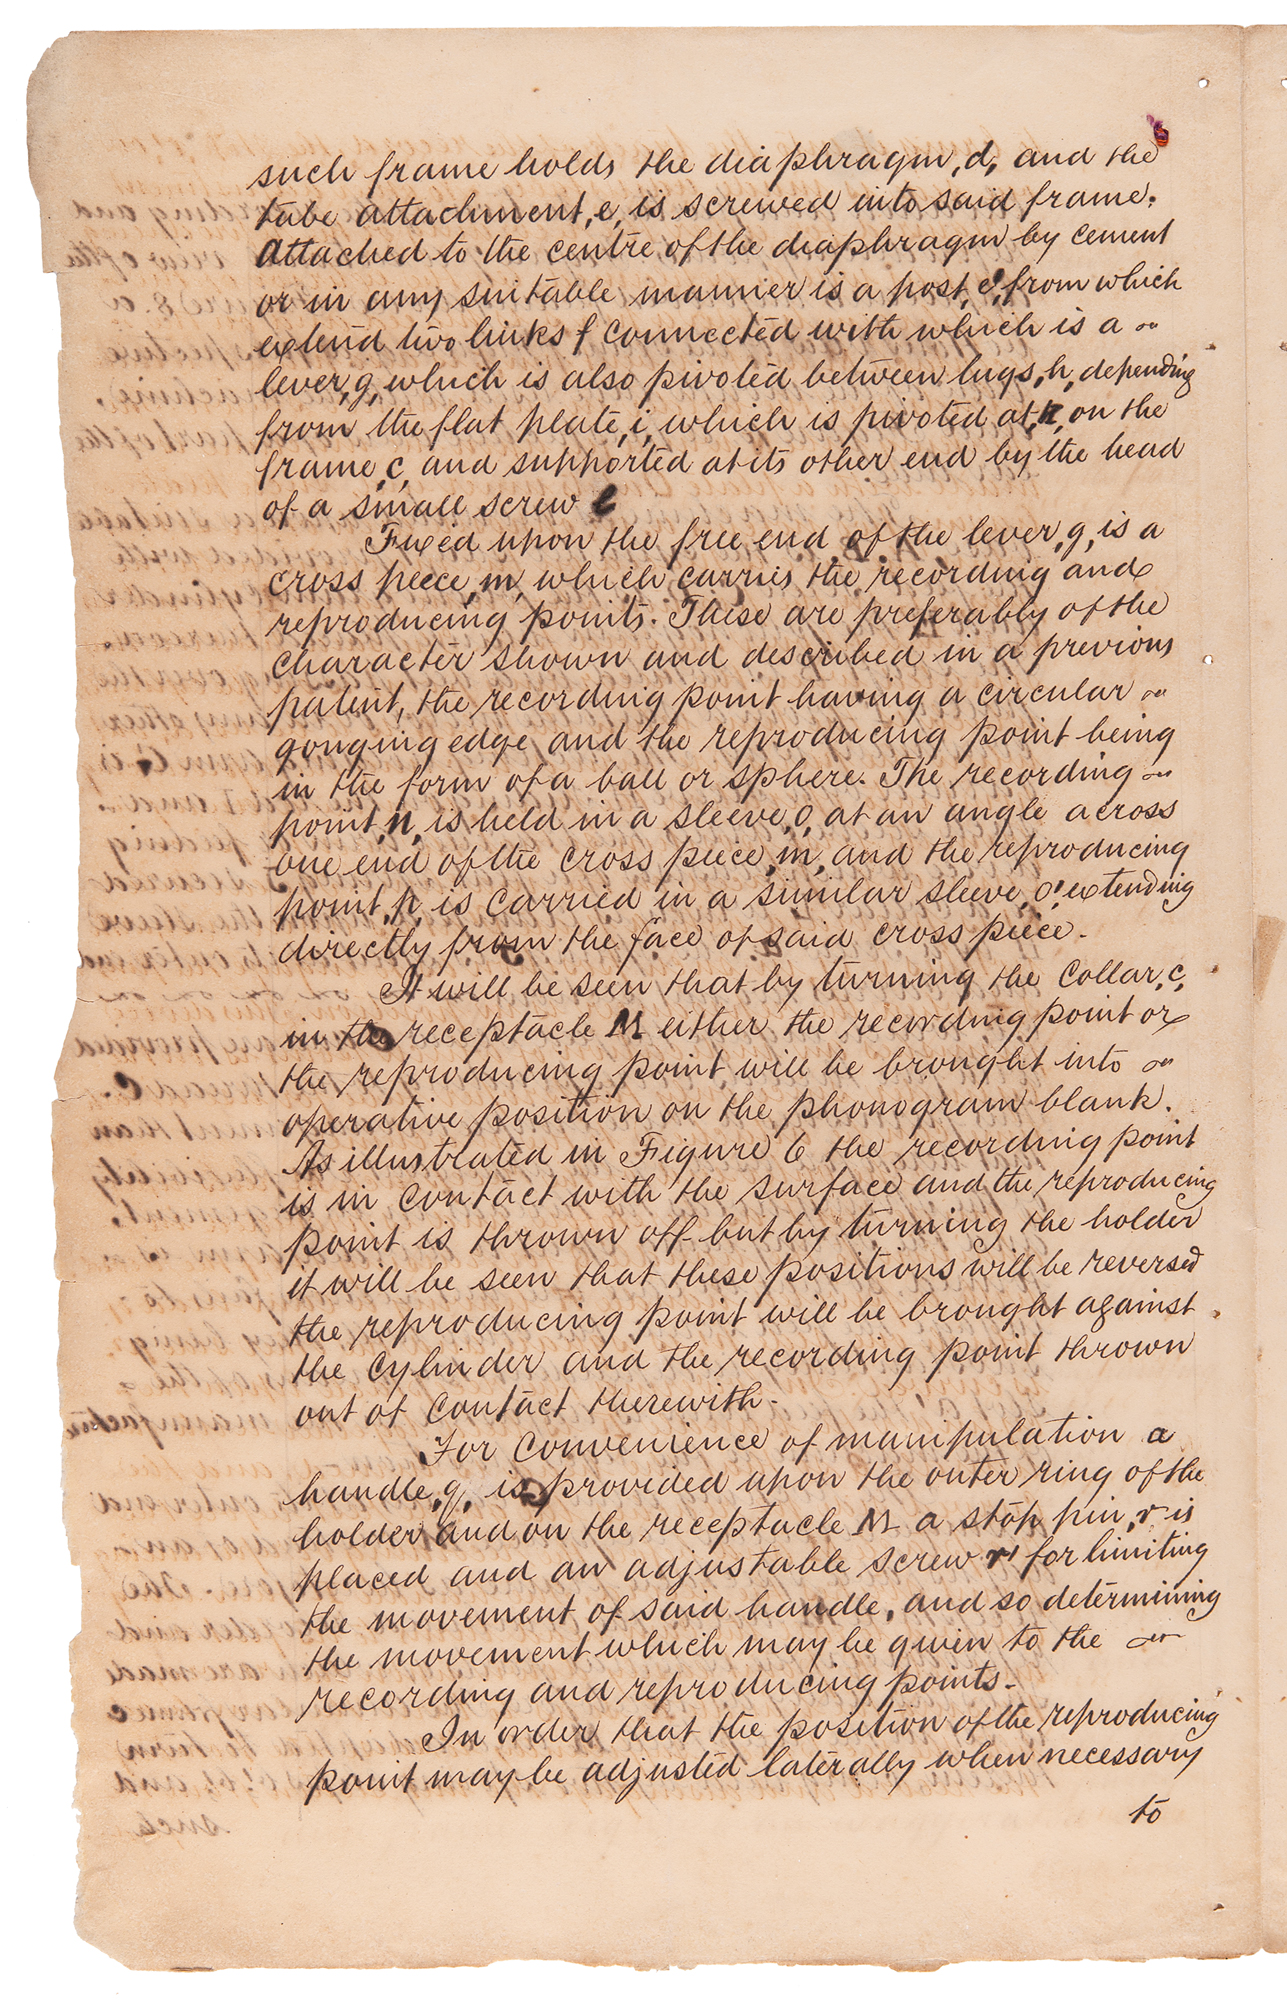 such frame holds the diaphragm, d, and the
tube attachment, e, is screwed into said frame.
Attached to the centre of the diaphragm by cement
or in any suitable manner is a post, e', from which
extend two links f connected with which is a
lever, g, which is also pivoted between lugs, h, depending
from the flat plate, i, which is pivoted at, k, on the
frame, c, and supported at its other end by the head
of a small screw l
Fixed upon the free end of the lever, g, is a
cross peece, m, which carries the recording and
reproducing points. These are preferably of the
character shown and described in a previous
patent, the recording point having a circular
gouging edge and the reproducing point being
in the form of a ball or sphere. The recording
point, n, is held in a sleeve, o, at an angle across
one end of the cross piece, m, and the reproducing
point, p, is carried in a similar sleeve, o', extending
directly from the face of said cross piece.
It will be seen that by turning the collar, c,
in the receptacle M either the recording point or
the reproducing point will be brought into
operative position on the phonogram blank.
As illustrated in Figure 6 the recording point
is in contact with the surface and the reproducing
point is thrown off but by turning the holder
it will be seen that these positions will be reversed
the reproducing point will be brought against
the cylinder and the recording point thrown
out of contact therewith.
For convenience of manipulation a
handle, q, is provided upon the outer ring of the
holder and on the receptacle M a stop pin, r is
placed and an adjustable screw r' for limiting
the movement of said handle, and so determining
the movement which may be given to the
recording and reproducing points.
In order that the position of the reproducing
point may be adjusted laterally when necessary
to